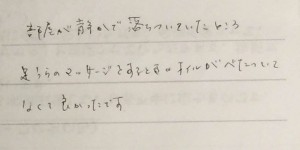 部屋が静かで落ちついていたところ
足うらのマッサージをするときのオイルがべたついて
なくて良かったです